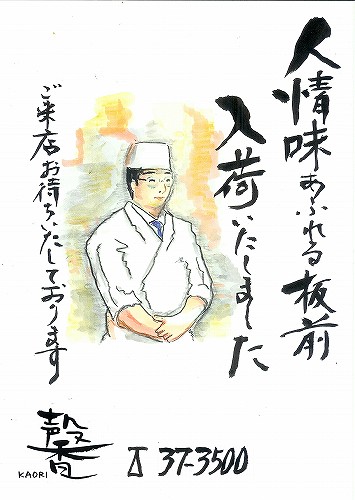 人情味あふれる板前
入荷いたしました
ご来店お待ちいたしております
馨
KAORI
37-3500